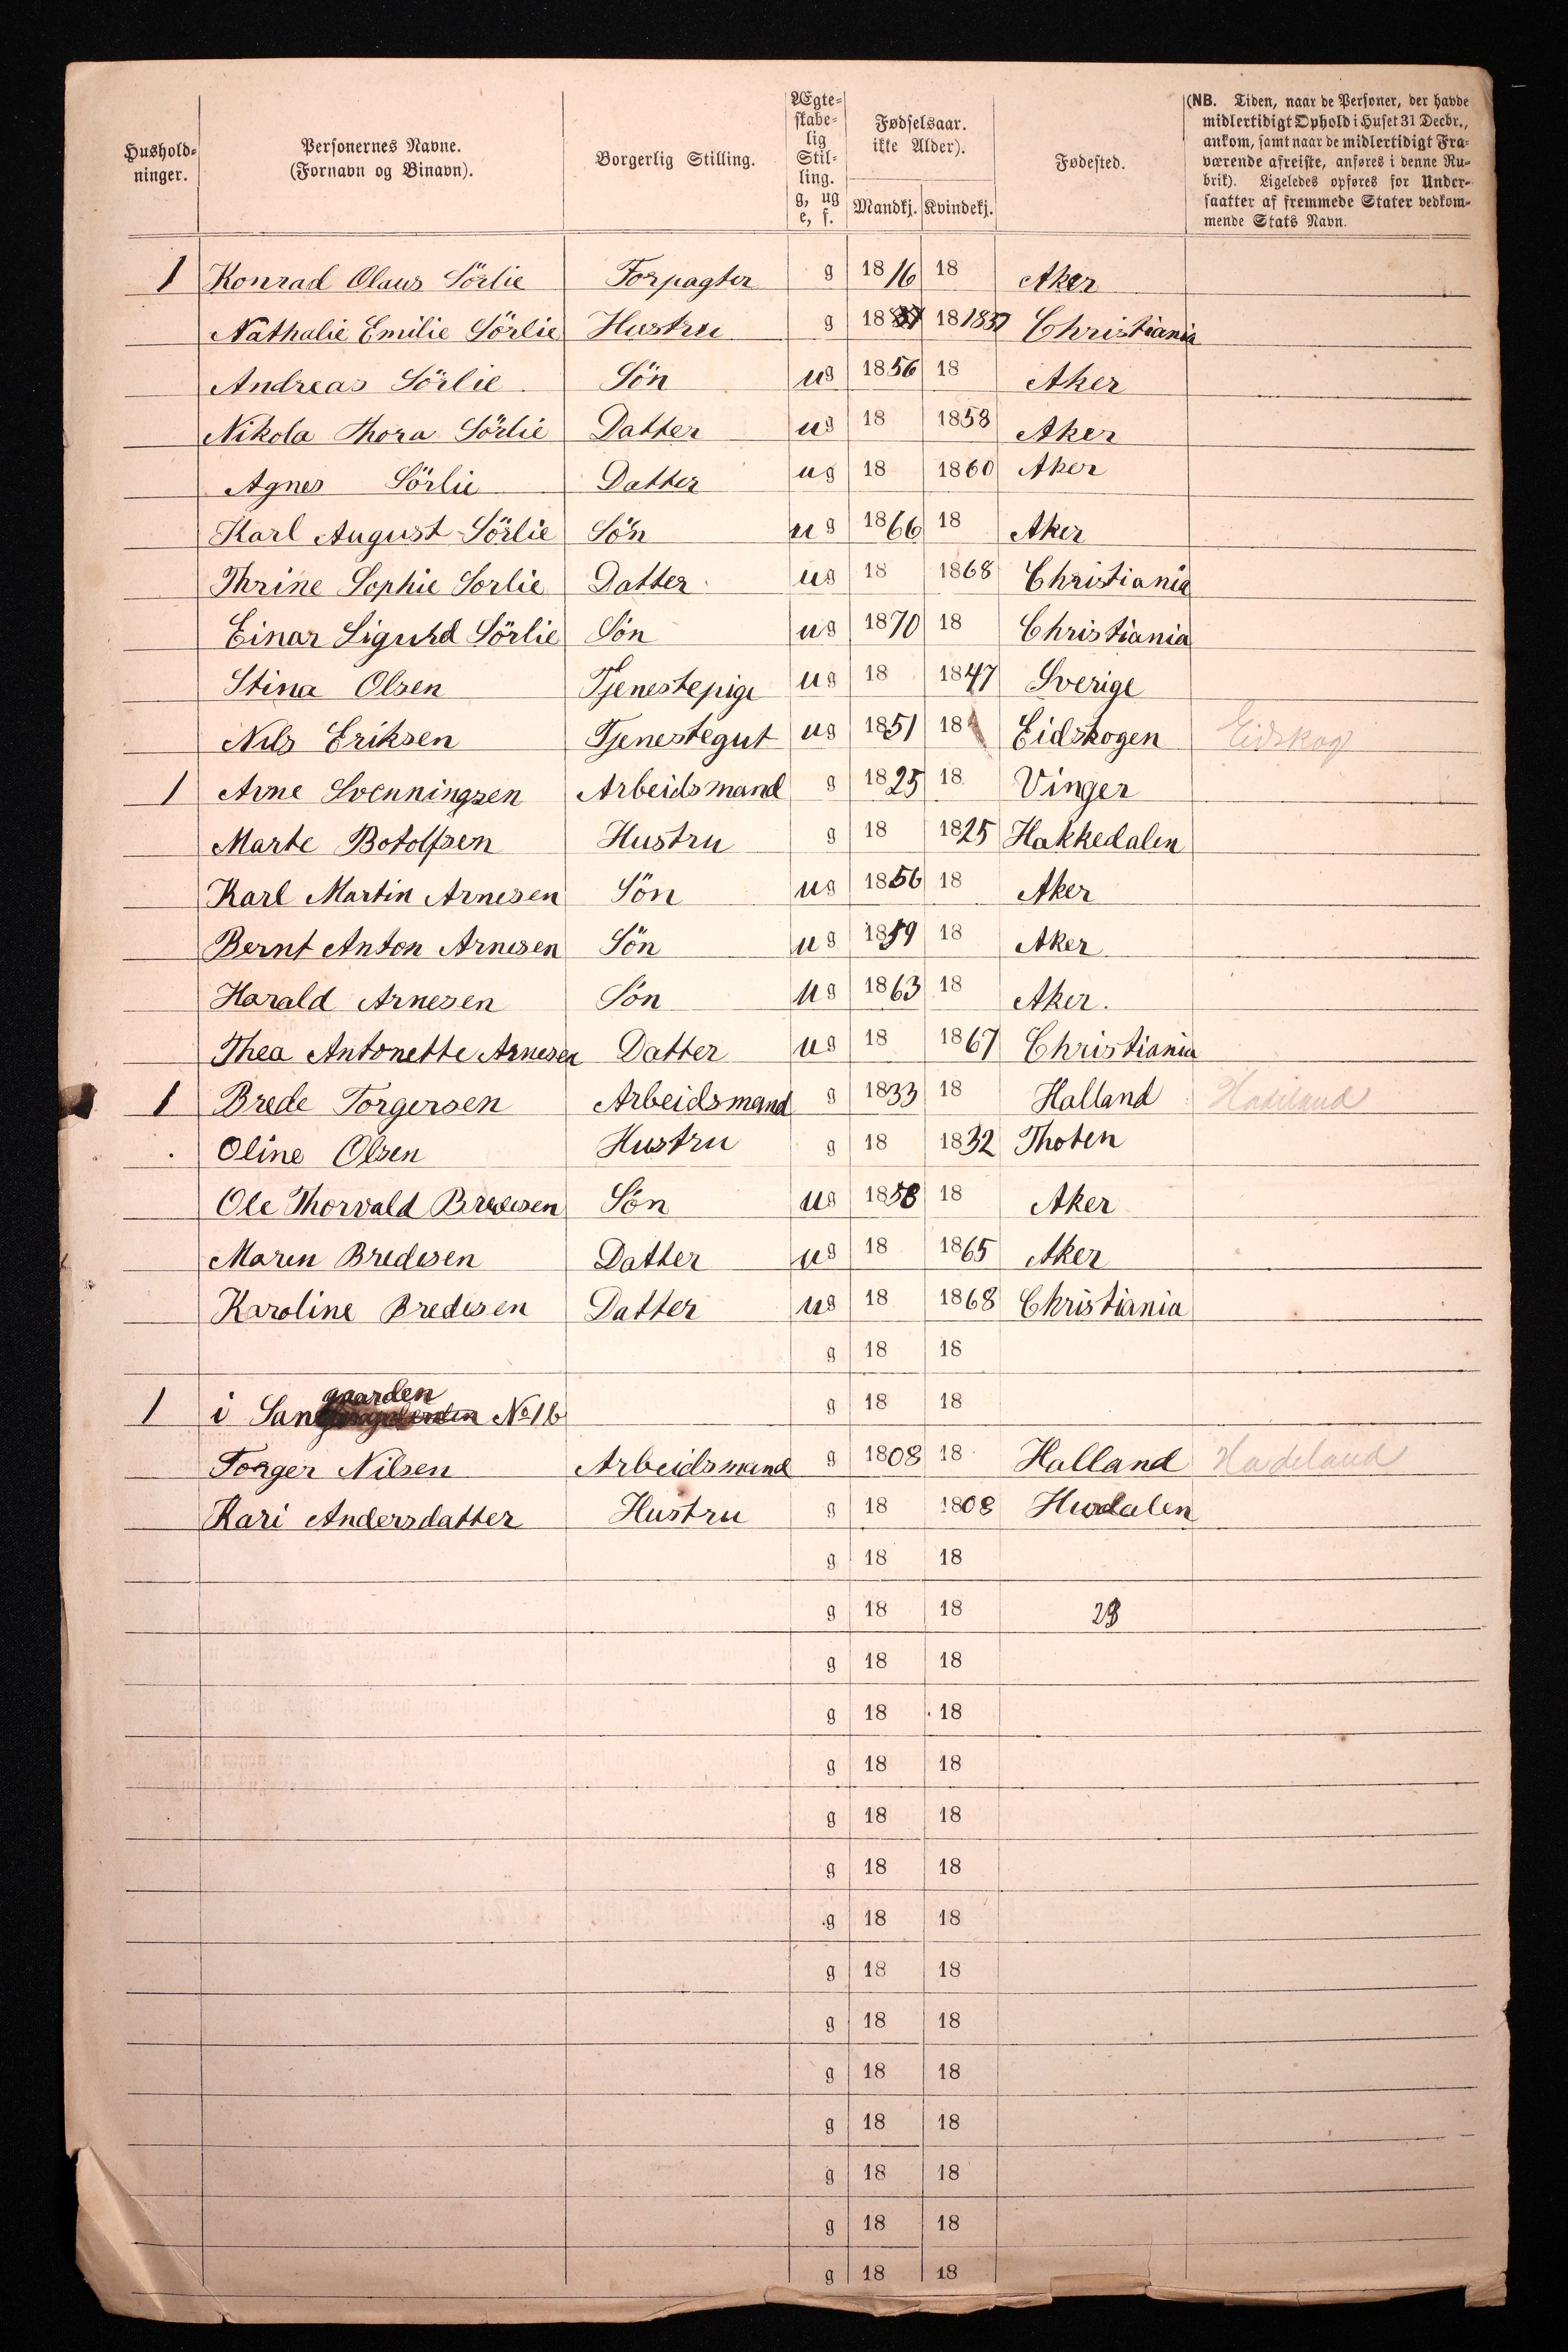 Hushold-
ninger.
Personernes Navne.
(Fornavn og Binavn).
Borgerlig Stilling.
Ægte-
skabe-
lig
Stil-
ling.
g, ug
e, f.
Fødselsaar.
ikke Alder).
Mandkj. Kvindekj.
Fødested.
(NB. Tiden, naar de Personer, der havde
midlertidigt Ophold i Huset 31 Decbr.,
ankom, samt naar de midlertidigt Fra-
værende afreiste, anføres i denne Ru-
brik). Ligeledes opføres for Under-
saatter af fremmede Stater vedkom-
mende Stats Navn.
1 Konrad Olaus Sörlie Forpagter g 1816 18 Aker
Nathalie Emilie Sörlie Hustru g 1837 181837 Christiania
Andreas Sörlie Sön ug 1856 18 Aker
Nikola Thora Sörlie Datter ug 18 1858 Aker
Agnes Sörlie Datter ug 18 1860 Aker
Karl August Sörlie Sön ug 1866 18 Aker
Thrine Sophie Sorlie Datter ug 18 1868 Christiania
Einar Sigurd Sörlie Sön ug 1870 18 Christiania
Stina Olsen Tjenestepige ug 18 1847 Sverige
Nils Eriksen Tjenestegut ug 1851 18 Eidskogen Eidskog
1 Arne Svenningsen Arbeidsmand g 1825 18 Vinger
Marte Botolfsen Hustru g 18 1825 Hakkedalen
Karl Martin Arnesen Sön ug 1856 18 Aker
Bernt Anton Arnesen Sön ug 1859 18 Aker
Harald Arnesen Sön ug 1863 18 Aker.
Thea Antonette Arnesen Datter ug 18 1867 Christiania
1 Brede Torgersen Arbeidsmand g 1833 18 Halland Hadeland
Oline Olsen Hustru g 18 1832 Thoten
Ole Thorvald Bredesen Sön ug 1858 18 Aker
Maren Bredesen Datter ug 18 1865 Aker
Karoline Bredesen Datter ug 18 1868 Christiania
g 18 18
gaarden
1 i San No 1b g 18 18
Torger Nilsen Arbeidsmand g 1808 18 Halland Hadeland
Kari Andersdatter Hustru g 18 1808 Hurdalen
g 18 18
g 18 18 23
g 18 18
g 18 18
g 18 18
g 18 18
g 18 18
g 18 18
g 18 18
g 18 18
g 18 18
g 18 18
g 18 18
g 18 18
g 18 18